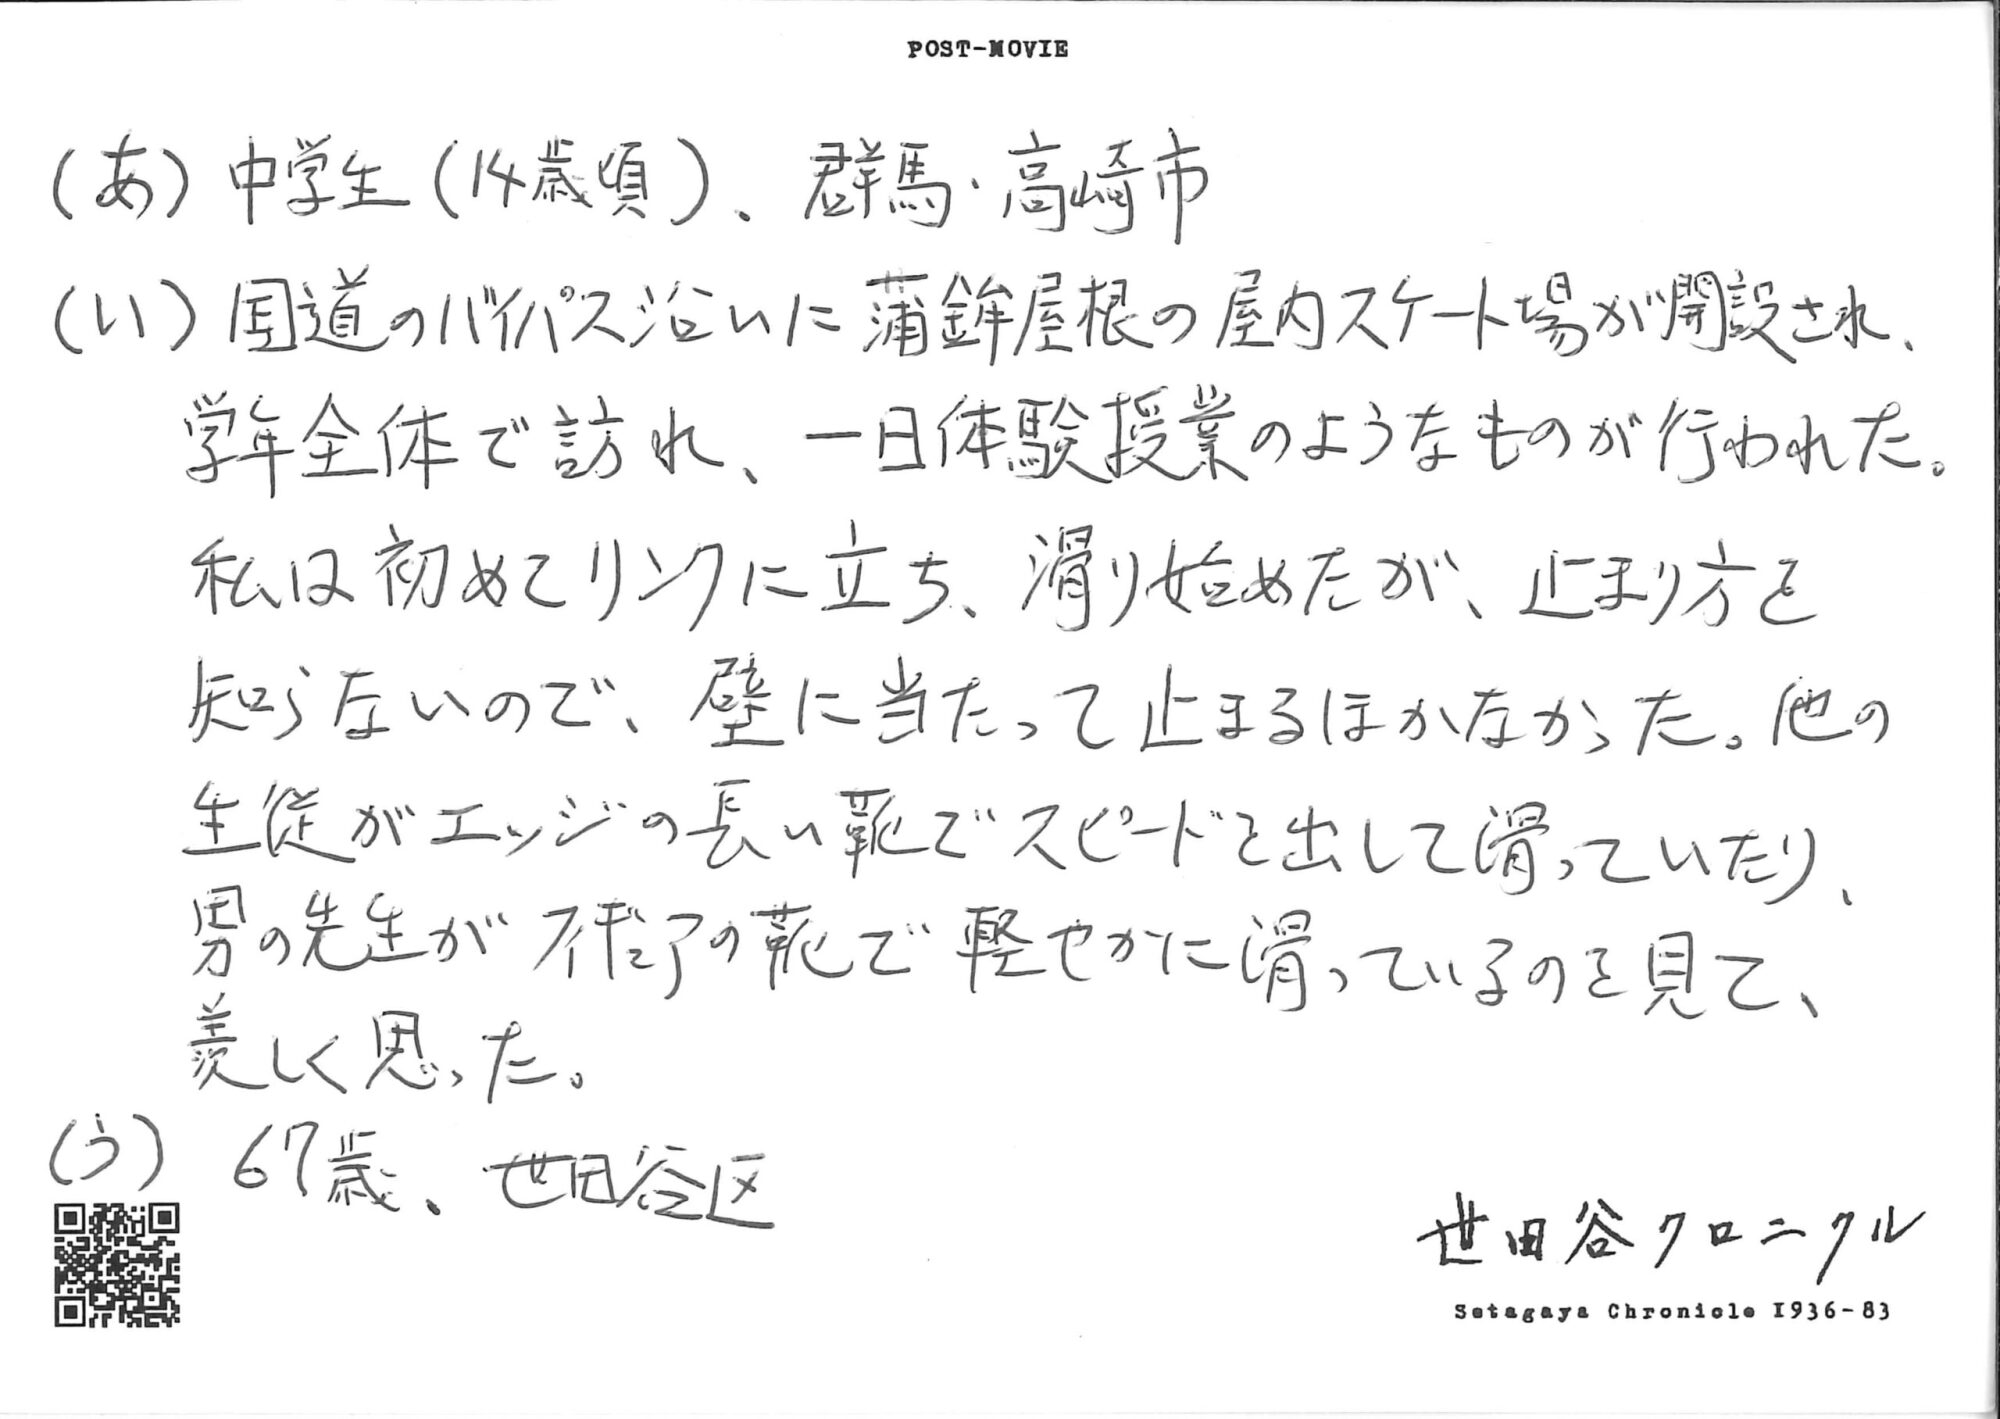 POST-MOVIE
(あ) 中学生(14歳頃)、群馬・高崎市
(い) 国道のバイパス沿いに蒲鉾屋根の屋内スケート場が開設され、
学年全体で訪れ、一日体験授業のようなものが行われた。
私は初めてリンクに立ち、滑り始めたが、止まり方を
知らないので、壁に当たって止まるほかなかった。他の
生徒がエッジの長い靴でスピードを出して滑っていたり、
男の先生がフィギュアの靴で軽やかに滑っているのを見て、
羨しく思った。
(う) 67歳、世田谷区
世田谷クロニクル
Setagaya Chronicle 1936-83